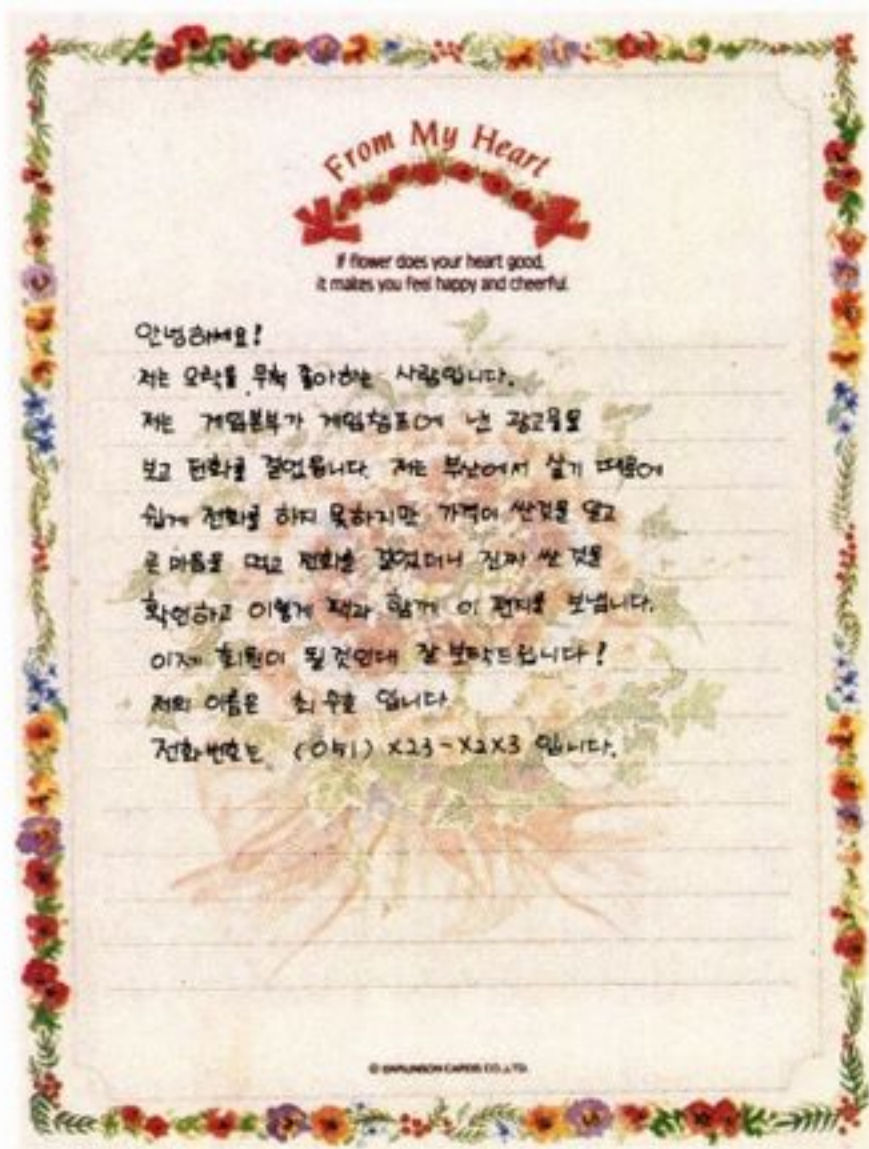 From My Heart
If flower does your heart good,
it makes you feel happy and cheerful.
안녕하세요!
저는 오락을 무척 좋아하는 사람입니다.
저는 게임본부가 게임챔프에 낸 광고물을
보고 전화를 걸었읍니다. 저는 부산에서 살기 때문에
쉽게 전화를 하지 못하지만 가격이 싼것을 알고
큰 마음을 먹고 전화를 걸었더니 진짜 싼 것을
확인하고 이렇게 팩과 함께 이 편지를 보냅니다.
이제 회원이 될것인대 잘 부탁드립니다!
저의 이름은 최수호 입니다.
전화번호는 (051) X23-X2X3 입니다.
© BARUNSON CARDS CO.,LTD.